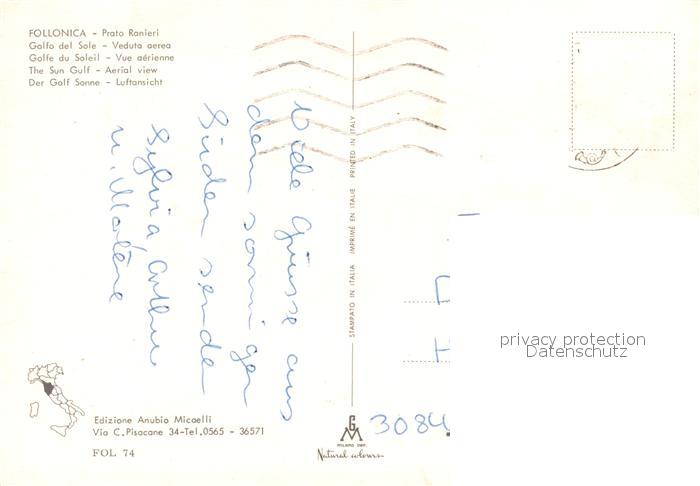 FOLLONICA - Prato Ranieri
Golfo del Sole - Veduta aerea
Golfe du Soleil - Vue aérienne
The Sun Gulf - Aerial view
Der Golf Sonne - Luftansicht
Viele Grüsse aus
dem sonnigen
Süden senden
Sylvia, Arthur
u. Marlène
STAMPATO IN ITALIA IMPRIMÉ EN ITALIE PRINTED IN ITALY
privacy protection
Datenschutz
3084
Edizione Anubio Micaelli
Via C. Pisacane 34-Tel. 0565 - 36571
FOL 74
GM
Natural colours